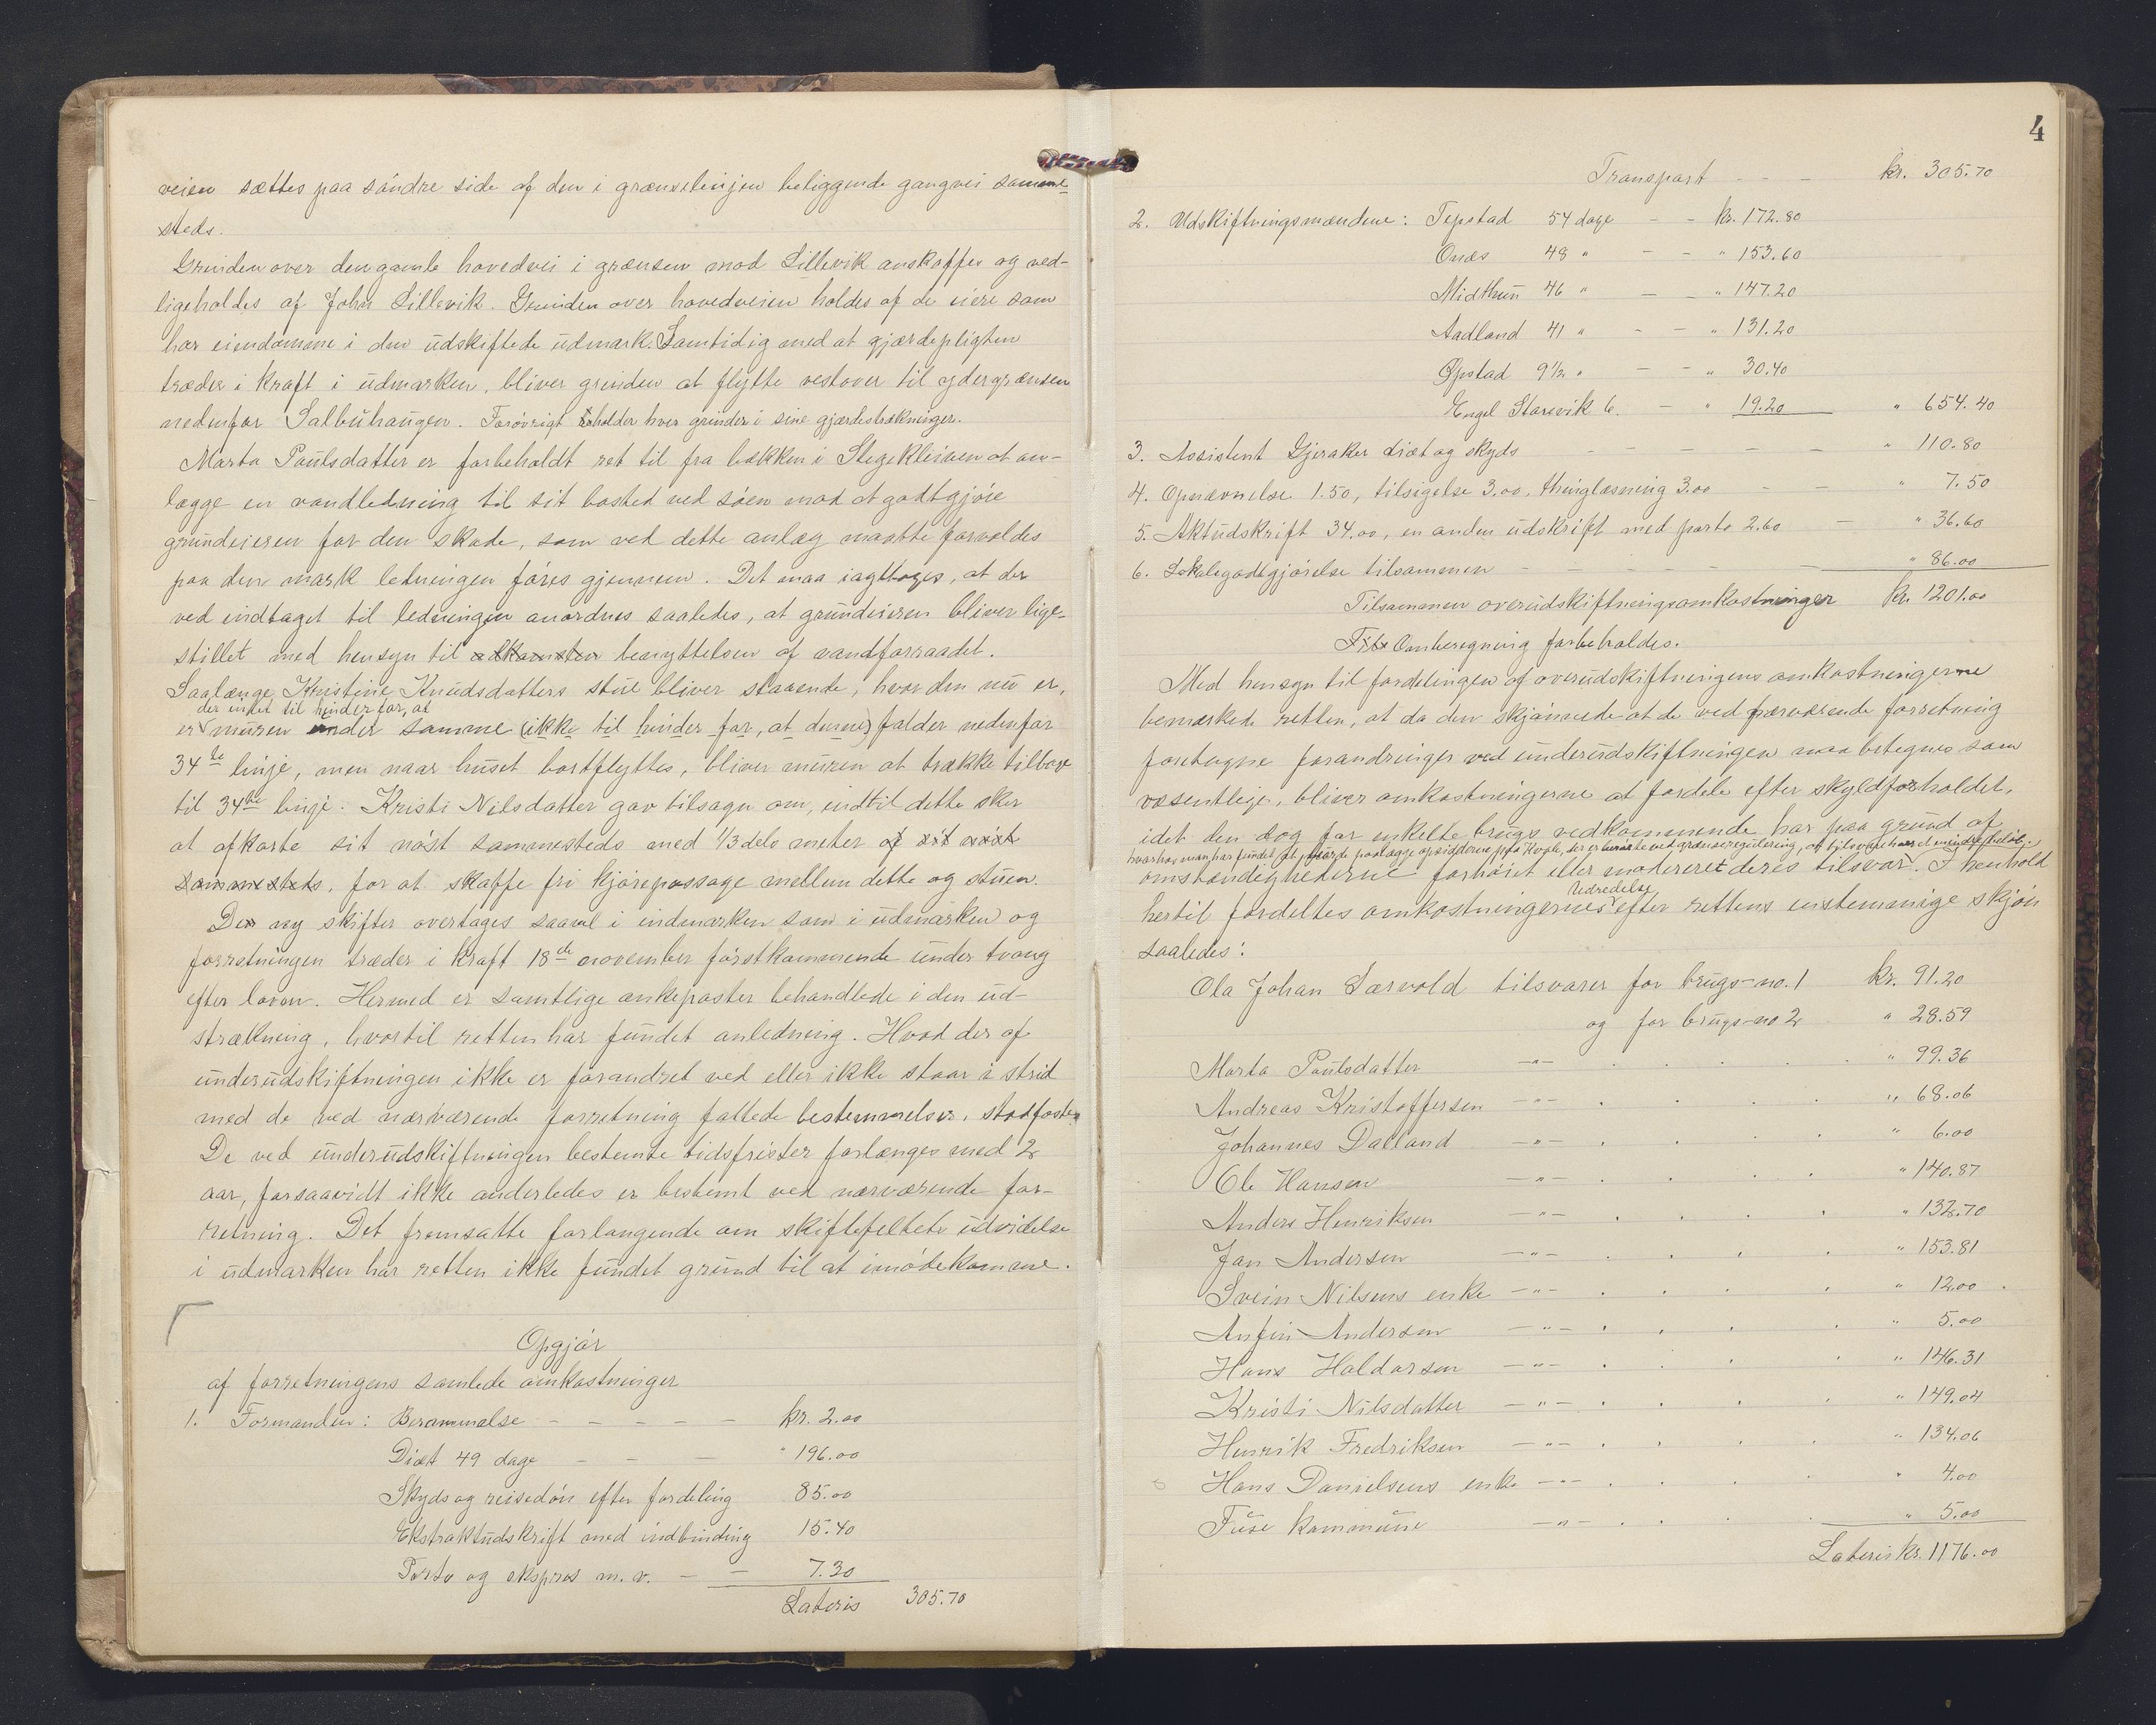 veien sættes paa søndre side af den i grænselinjen beliggende gangvei samme-
steds.
Grinden over den gamle hovedvei i grænsen mod Lillevik anskaffes og ved-
ligeholdes af John Lillevik. Grinden over hovedveien holdes af de eiere som
har eiendomme i den udskiftede udmark. Samtidig med at gjærdepligten
træder i kraft i udmarken, bliver grinden at flytte vestover til ydergrænsen
nedenfor Salbuhaugen. Forøvrigt holder hver grinder i sine gjærdestrækninger.
Marta Paulsdatter er forbeholdt ret til fra bækken i Stegekleiven at an-
lægge en vandledning til sit bosted ved søen mod at godtgjøre
grundeieren for den skade, som ved dette anlæg maatte forvoldes
paa den mark ledningen føres gjennem. Det maa iagttages, at der
ved indtaget til ledningen anordnes saaledes, at grundeieren bliver lige-
stillet med hensyn til adkomsten benyttelsen af vandforraadet.
Saalænge Kristine Knudsdatters stue bliver staaende, hvor den nu er,
der intet til hinder for, at
er muren under samme (ikke til hinder for, at denne) falder nedenfor
34te linje, men naar huset bortflyttes, bliver muren at trække tilbage
til 34te linje. Kristi Nilsdatter gav tilsagn om, indtil dette sker
at afkorte sit nøst sammesteds med 1/3 dels meter af sit nøst
sammesteds, for at skaffe fri kjørepassage mellem dette og stuen.
De ny skifter overtages saavel i indmarken som i udmarken og
forretningen træder i kraft 18de november førstkommende under tvang
efter loven. Hermed er samtlige ankeposter behandlede i den ud-
strækning, hvortil retten har fundet anledning. Hvad der af
underudskiftningen ikke er forandret ved eller ikke staar i strid
med de ved nærværende forretning fattede bestemmelser, stadfæstes.
De ved underudskiftningen bestemte tidsfrister forlænges med 2
aar, forsaavidt ikke anderledes er bestemt ved nærværende for-
retning. Det fremsatte forlangende om skiftefeltets udvidelse
i udmarken har retten ikke fundet grund til at imødekomme.
Opgjør
af forretningens samlede omkostninger
1. Formanden: Berammelse - - - - - kr. 2.00
Diæt 49 dage - - - " 196.00
Skyds og reisedøn efter fordeling 85.00
Ekstraktudskrift med indbinding 15.40
Porto og ekspres m. v. - - 7.30
Lateris 305.70
4
Transport - - - kr. 305.70
2. Udskiftningsmændene: Tepstad 54 dage - - kr. 172.80
Onæs 48 " - - " 153.60
Midthun 46 " - - " 147.20
Aadland 41 " - - " 131.20
Opstad 9 1/2 " - - " 30.40
Engel Storevik 6. - " 19.20 " 654.40
3. Assistent Gjeraker diæt og skyds - - - - - - " 110.80
4. Opnævnelse 1.50, tilsigelse 3.00, thinglæsning 3.00 - - " 7.50
5. Aktudskrift 34.00, en anden udskrift med porto 2.60 - " 36.60
6. Lokalegodtgjørelse tilsammen - - - - - " 86.00
Tilsammen overudskiftningsomkostninger kr. 1201.00
Omberegning forbeholdes.
Med hensyn til fordelingen af overudskiftningens omkostningerne
bemærkede retten, at da den skjønnede at de ved nærværende forretning
foretagne forandringer ved underudskiftningen maa betegnes som
væsentlige, bliver omkostningerne at fordele efter skyldforholdet,
idet den dog for enkelte brugs vedkommende har paa grund af
omstændighederne forhøiet eller modereret deres tilsvar. I henhold
Udredelse
hertil fordeltes omkostningernes efter rettens enstemmige skjøn
saaledes:
Ola Johan Sævold tilsvarer for brugs-no. 1 kr. 91.20
og for brugs-no 2 " 28.59
Marta Paulsdatter -"- . . . " 99.36
Andreas Kristoffersen -"- . . . " 68.06
Johannes Dalland -"- . . . " 6.00
Ole Hansen -"- . . . " 140.87
Anders Henriksen -"- . . . " 132.70
Jan Andersen -"- . . . " 153.81
Svein Nilsens enke -"- . . . " 12.00
Anfin Andersen -"- . . . " 5.00
Hans Haldorsen -"- . . . " 146.31
Kristi Nilsdatter -"- . . . " 149.04
Henrik Fredriksen -"- . . . " 134.06
Hans Danielsens enke -"- . . . " 4.00
Fuse kommune -"- . . . " 5.00
Lateris kr. 1176.00